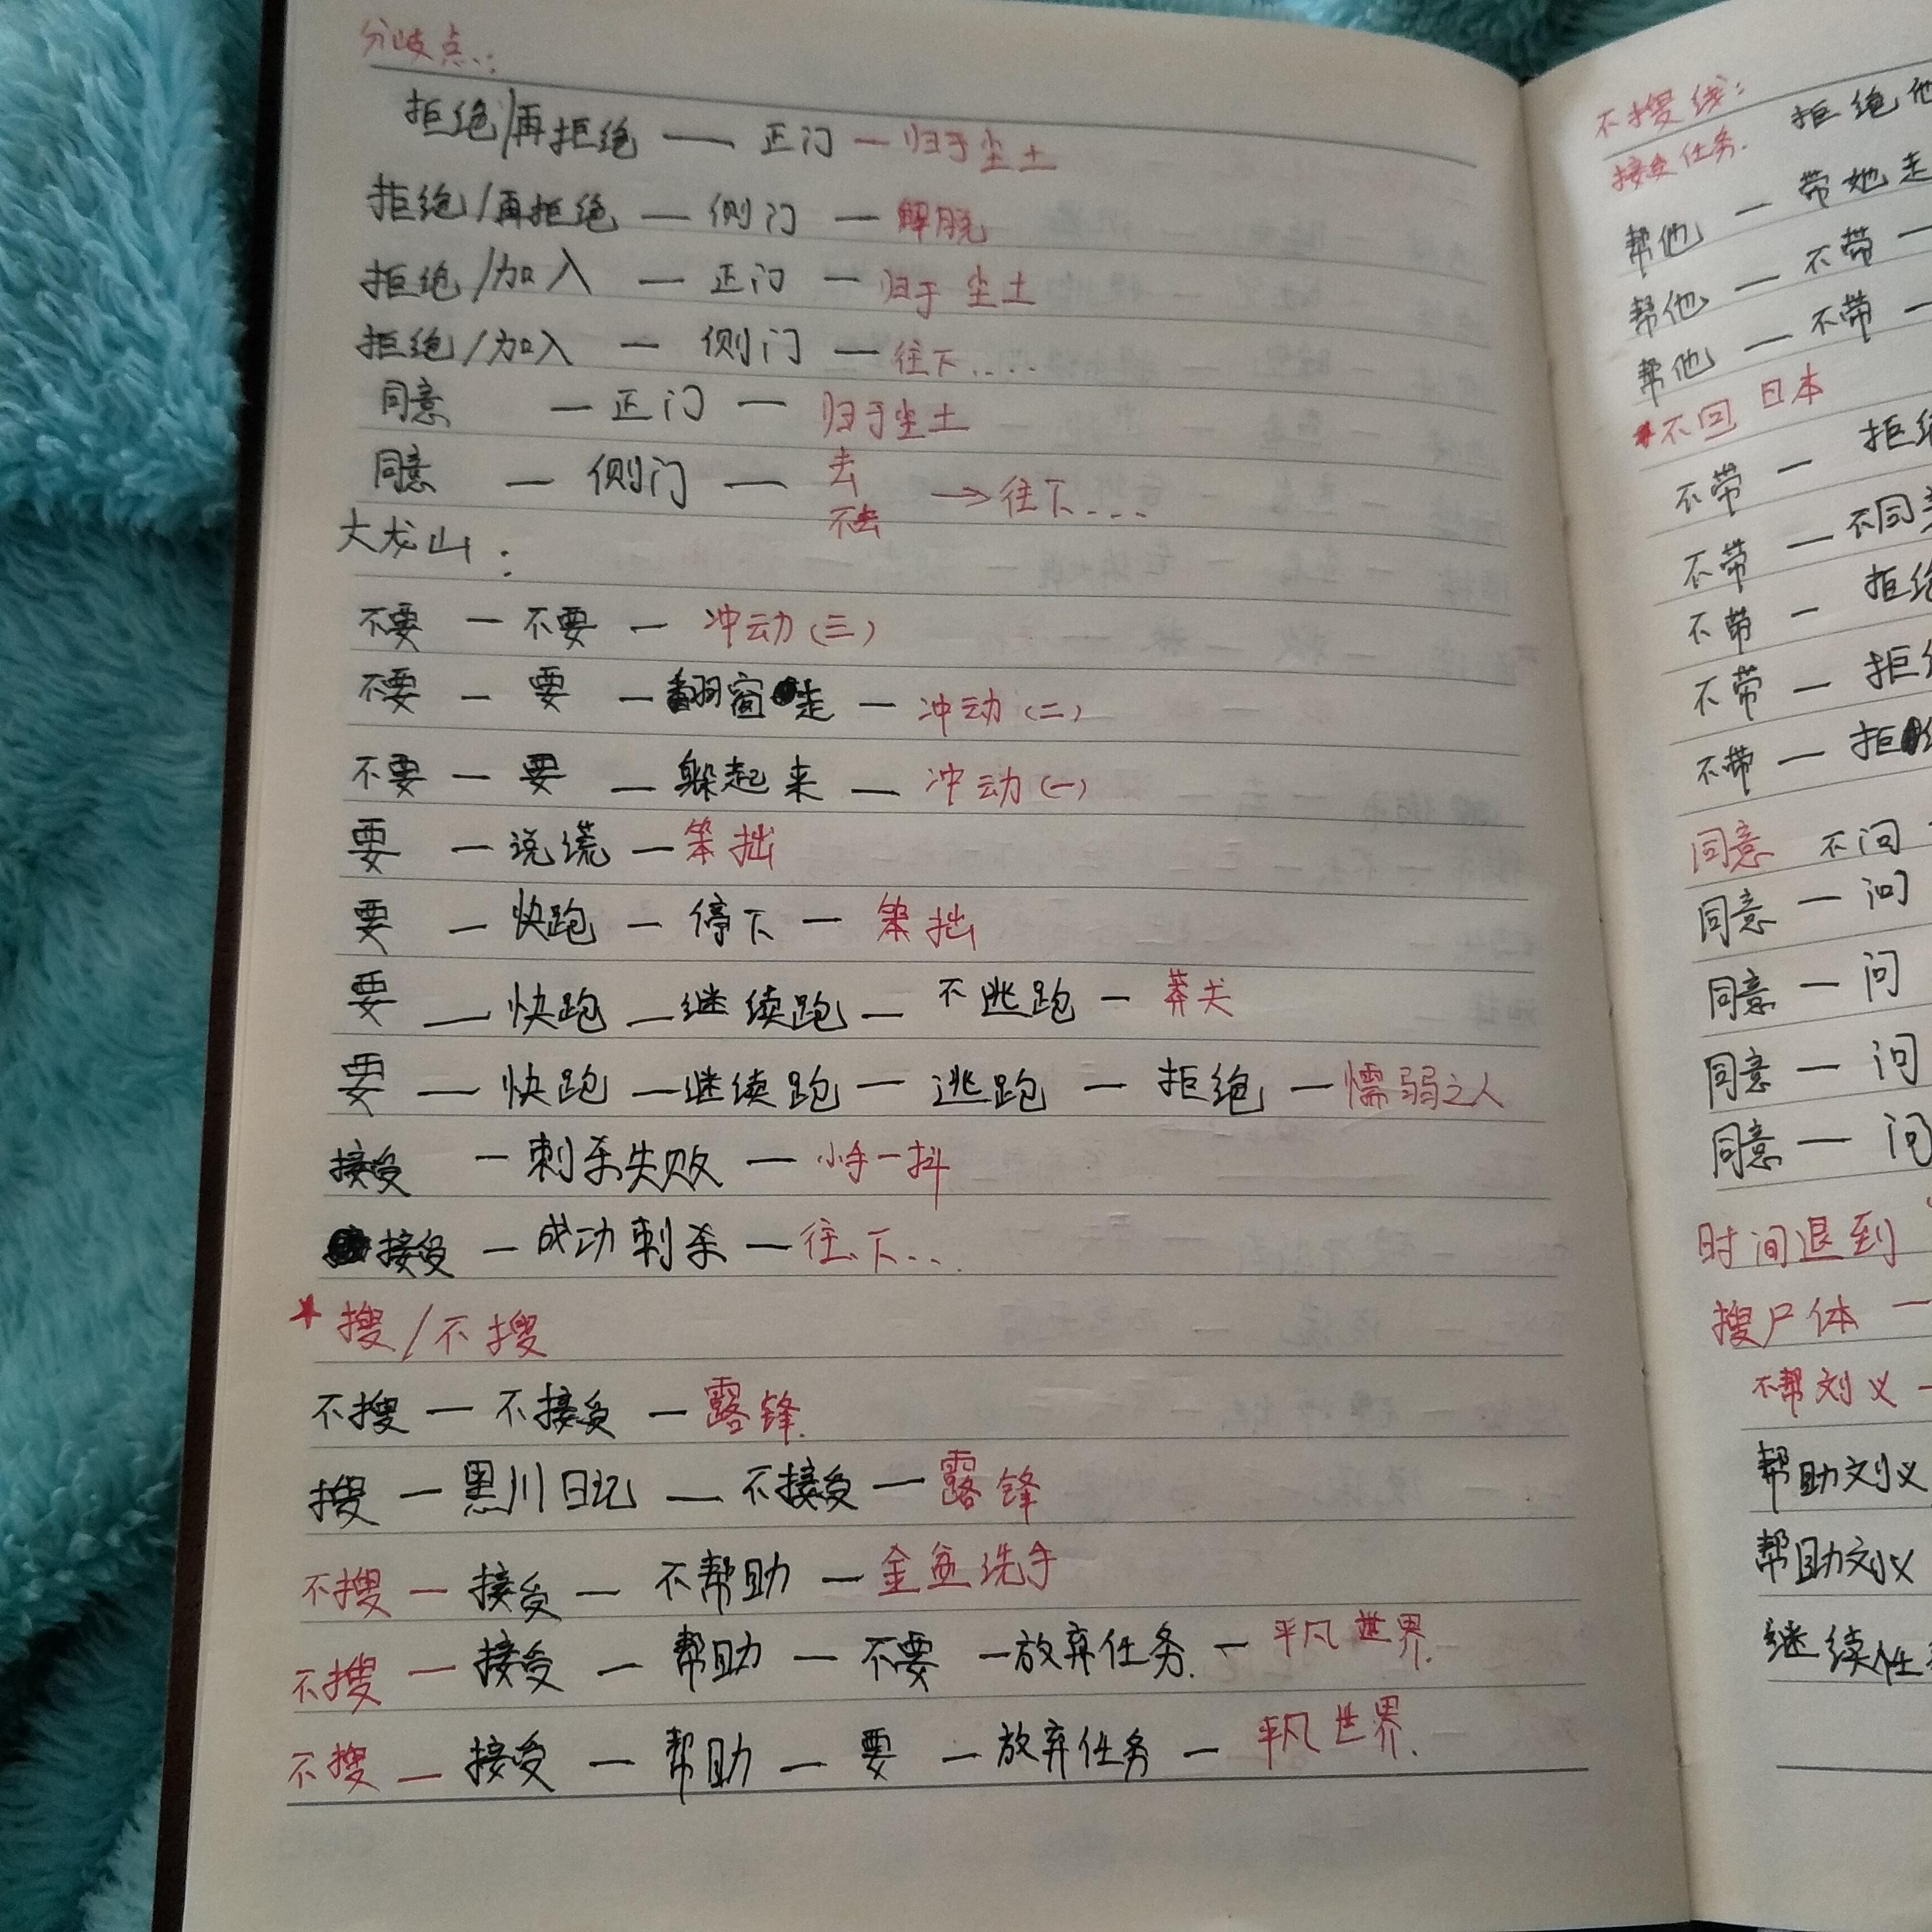 分岐点:
拒绝/再拒绝 — 正门 — 归于尘土
拒绝/再拒绝 — 侧门 — 解脱
拒绝/加入 — 正门 — 归于尘土
拒绝/加入 — 侧门 — 往下....
同意 — 正门 — 归于尘土
同意 — 侧门 — 去
不去 → 往下....
大龙山:
不要 — 不要 — 冲动(三)
不要 — 要 — 翻窗走 — 冲动(二)
不要 — 要 — 躲起来 — 冲动(一)
要 — 说谎 — 笨拙
要 — 快跑 — 停下 — 笨拙
要 — 快跑 — 继续跑 — 不逃跑 — 莽夫
要 — 快跑 — 继续跑 — 逃跑 — 拒绝 — 懦弱之人
接受 — 刺杀失败 — 小手一抖
接受 — 成功刺杀 — 往下...
*搜/不搜
不搜 — 不接受 — 露锋.
搜 — 黑川日记 — 不接受 — 露锋
不搜 — 接受 — 不帮助 — 金盆洗手
不搜 — 接受 — 帮助 — 不要 — 放弃任务. — 平凡世界.
不搜 — 接受 — 帮助 — 要 — 放弃任务 — 平凡世界.
不搜线:
接受任务. 拒绝他
帮他 — 带她走
帮他 — 不带 —
帮他 — 不带 —
*不回日本
不带 — 拒绝
不带 — 不同意
不带 — 拒绝
不带 — 拒绝
不带 — 拒绝
同意 不问
同意 — 问
同意 — 问
同意 — 问
同意 — 问
时间退到
搜尸体 —
不帮刘义 —
帮助刘义
帮助刘义
继续任务